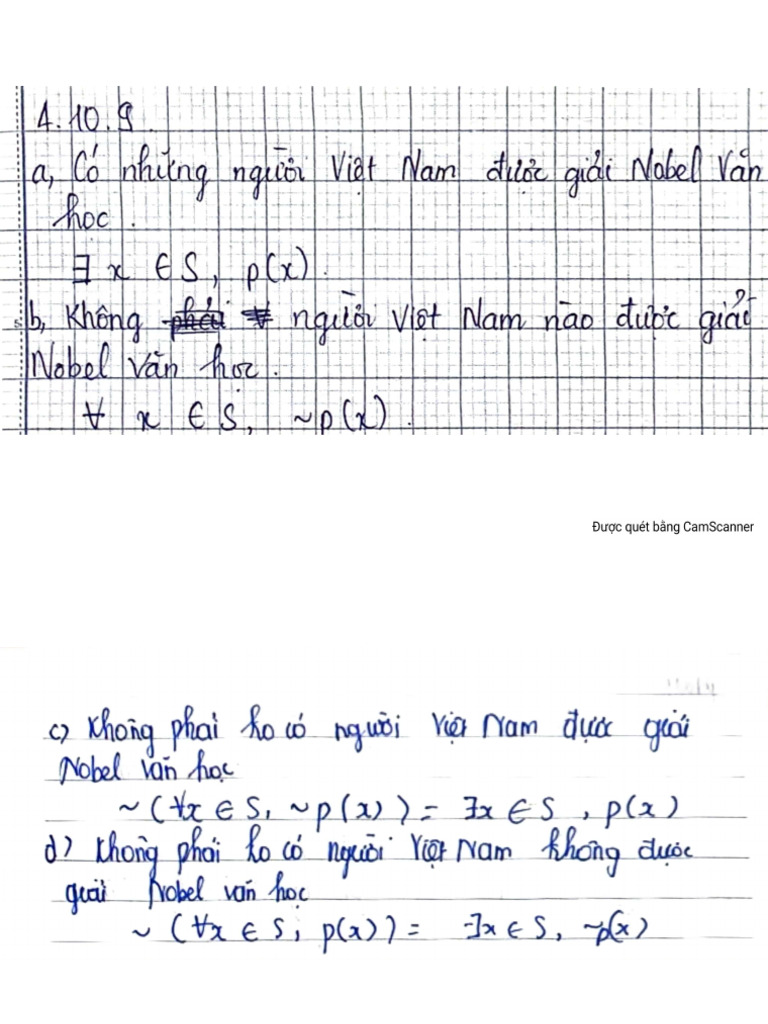 4.10.9
a, Có những người Việt Nam được giải Nobel Văn
học.
∃ x ∈ S, p(x).
b, Không người Việt Nam nào được giải
Nobel Văn học.
∀ x ∈ S, ~p(x).
Được quét bằng CamScanner
c) Không phải ko có người Việt Nam được giải
Nobel văn học
~ (∀x ∈ S, ~p(x)) = ∃x ∈ S, p(x)
d) Không phải ko có người Việt Nam không được
giải Nobel văn học
~ (∀x ∈ S, p(x)) = ∃x ∈ S, ~p(x)